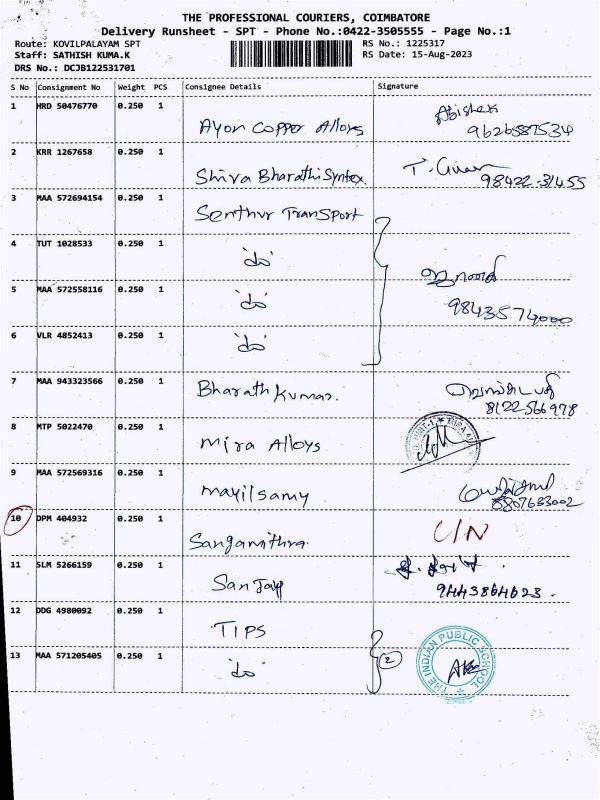 THE PROFESSIONAL COURIERS, COIMBATORE
Delivery Runsheet - SPT - Phone No.:0422-3505555 - Page No.:1
Route: KOVILPALAYAM SPT
RS No.: 1225317
Staff: SATHISH KUMA.K
RS Date: 15-Aug-2023
DRS No.: DCJB122531701
S No Consignment No Weight PCS Consignee Details Signature
1 HRD 50476770 0.250 1
Ayon Copper Alloys
Abishek
9626587534
2 KRR 1267658 0.250 1
Shiva Bharathi Syntex
98422-31455
3 MAA 572694154 0.250 1
Senthur Transport
4 TUT 1028533 0.250 1
'do'
5 MAA 572558116 0.250 1
'do'
9843574000
6 VLR 4852413 0.250 1
'do'
7 MAA 943323566 0.250 1
Bharath Kumar.
8122566978
8 MTP 5022470 0.250 1
Mira Alloys
9 MAA 572569316 0.250 1
mayilsamy
8807633002
10 DPM 404932 0.250 1
Sangamithra.
C/N
11 SLM 5266159 0.250 1
Sanjay
9443864623.
12 DDG 4980092 0.250 1
TIPS
13 MAA 571205405 0.250 1
'do'
2
THE INDIAN PUBLIC SCHOOL